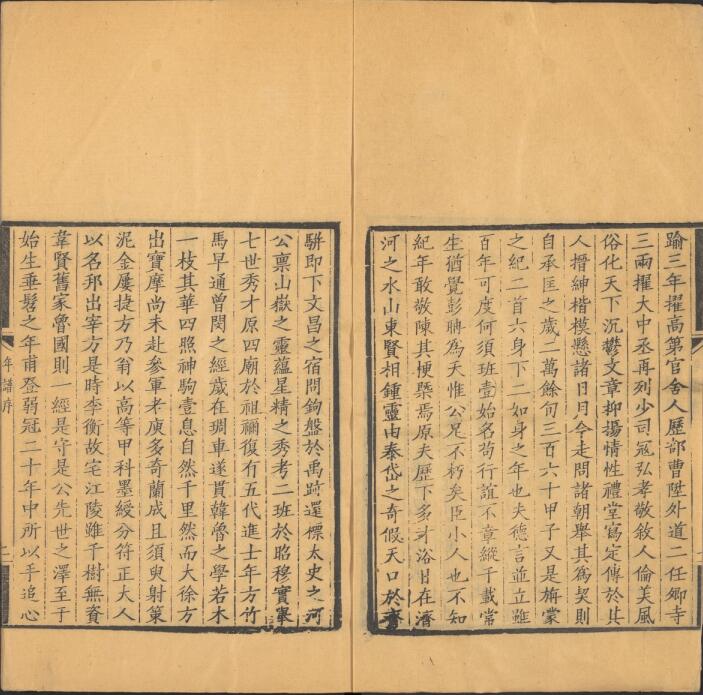 踰三年擢高第官舍人歷部曹陞外道二任卿寺
三兩擢大中丞再列少司冦弘孝敬敘人倫美風
俗化天下沉鬱文章抑揚情性禮堂寫定傳於其
人搢紳楷模懸諸日月今走問諸朝舉其為契則
自承匡之歲二萬餘旬三百六十甲子又是旃蒙
之紀二首六身下二如身之年也夫德言並立雖
百年可度何須班壹始名苟行誼不章縱千載常
生猶覺彭聃為天惟公足不朽矣臣小人也不知
紀年敢敬陳其梗槩焉原夫歷下多才浴日在濟
河之水山東賢相鍾靈由泰岱之奇假天口於齊
駢即下文昌之宿問鉤盤於禹跡還標太史之河
公禀山嶽之靈蘊星精之秀考二班於昭穆實舉
七世秀才原四廟於祖禰復有五代進士年方竹
馬早通曾閔之經歲在琱車遂貫韓魯之學若木
一枝其華四照神駒壹息自然千里然而大徐方
出寶摩尚未赴參軍老庾多奇蘭成且須臾射策
泥金屢捷方乃翁以高等甲科墨綬分符正大人
以名邦出宰方是時李衡故宅江陵雖千樹無資
韋賢舊家魯國則一經是守是公先世之澤至于
始生垂髫之年甫登弱冠二十年中所以手追心
年譜序
二